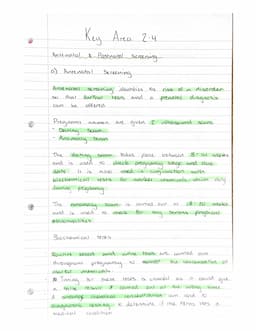 Key Area 2.4
Antenatal & Postnatal Screening
a) Antenatal Screening
Antenatal screening identifies the risk of a disorder
so that further tests and a prenatal diagnosis
can be offered.
Pregnant women are given 2 ultrasound scans
- Dating Scan
- Anomaly Scan
The dating scan takes place between 8-14 weeks
and is used to check pregnancy stage and due
date. It is also used in conjunction with
biochemical tests for marker chemicals which vary
during pregnancy
The anomaly scan is carried out at 18-20 weeks
and is used to check for any serious physical
abnormalities
Biochemical tests
Routine blood and urine tests are carried out
throughout pregnancy to monitor the concentration of
marker chemicals.
Timing for these tests is crucial as it could give
a false result if carried out at the wrong time
can lead to
diagnostic testing to determine if the fetus has a
medical condition